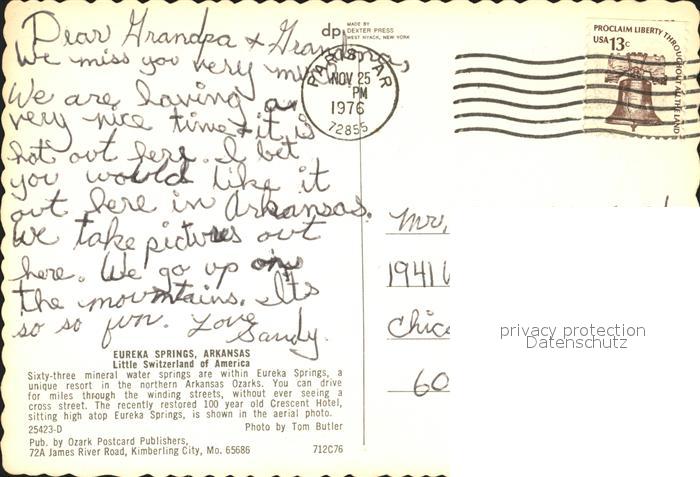 Dear Grandpa + Grandma,
We miss you very much
We are having a
very nice time + it is
hot out here. I bet
you would like it
out here in Arkansas.
We take pictures out
here. We go up on
the mountains. Its
so so fun. Love
Sandy.
EUREKA SPRINGS, ARKANSAS
Little Switzerland of America
Sixty-three mineral water springs are within Eureka Springs, a
unique resort in the northern Arkansas Ozarks. You can drive
for miles through the winding streets, without ever seeing a
cross street. The recently restored 100 year old Crescent Hotel,
sitting high atop Eureka Springs, is shown in the aerial photo.
25423-D Photo by Tom Butler
Pub. by Ozark Postcard Publishers,
72A James River Road, Kimberling City, Mo. 65686 712C76
dp
MADE BY
DEXTER PRESS
WEST NYACK, NEW YORK
PARIS AR
NOV 25
PM
1976
72855
PROCLAIM LIBERTY THROUGHOUT ALL THE LAND
USA 13c
Mr.
1941
Chic
60
privacy protection
Datenschutz